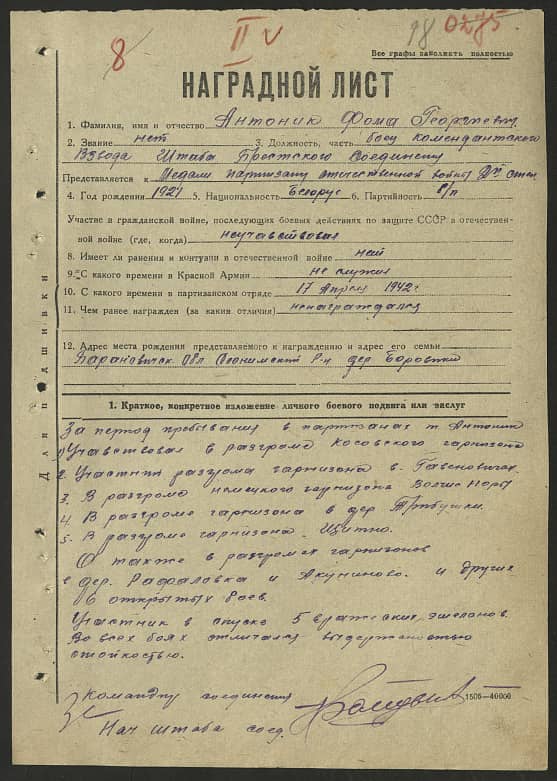 8 II v 98 0285
Все графы заполнять полностью
НАГРАДНОЙ ЛИСТ
1. Фамилия, имя и отчество Антоник Фома Георгиевич
2. Звание нет 3. Должность, часть боец комендантского
взвода штаба Брестского Соединения
Представляется к Медали партизану отечественной войны II степ
4. Год рождения 1921 5. Национальность Белорус 6. Партийность б/п
Участие в гражданской войне, последующих боевых действиях по защите СССР в отечествен-
ной войне (где, когда) неучавствовал
8. Имеет ли ранения и контузии в отечественной войне нет
9. С какого времени в Красной Армии не служил
10. С какого времени в партизанском отряде 17 Апреля 1942 г
11. Чем ранее награжден (за какия отличия) ненаграждался
12. Адрес места рождения представляемого к награждению и адрес его семьи
Барановичск. Обл. Слонимский Р-н дер. Боровики
Для подшивки
1. Краткое, конкретное изложение личного боевого подвига или заслуг
За период пребывания в партизанах т. Антоник
1) Учавствовал в разгроме Косовского гарнизона
2. Участник разгрома гарнизона в. Гавеновичах
3. В разгроме немецкого гарнизона Волчие Норы
4. В разгроме гарнизона в дер
5. В разгроме гарнизона. Щитно.
А также в разгромех гарнизонов
в дер. Рафаловка и Акуниново. и других
6 открытых боев.
Участник в спуске 5 вражеских эшелонов.
Во всех боях отличался выдержаностью
стойкостью.
Командир соединения
1505—40000
Нач штаба соед.